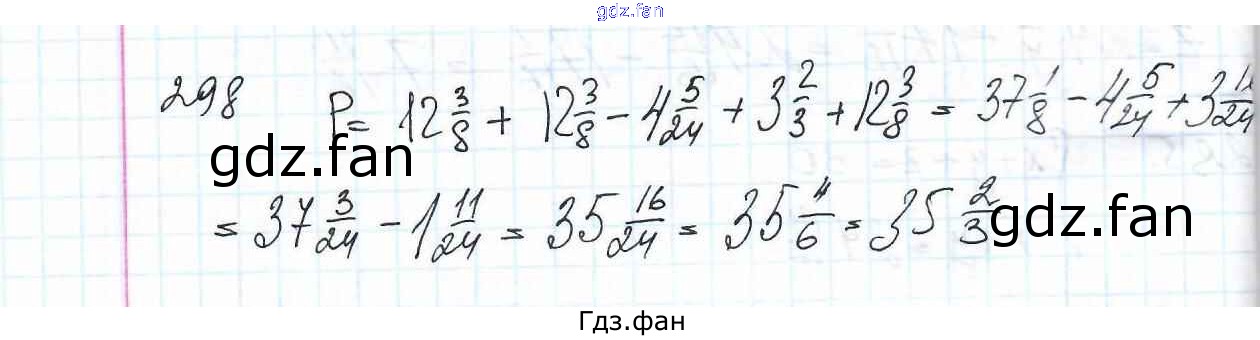 gdz.fan
298 P = 12 3/8 + 12 3/8 - 4 5/24 + 3 2/3 + 12 3/8 = 37 1/8 - 4 5/24 + 3
gdz.fan
= 37 3/24 - 1 11/24 = 35 16/24 = 35 4/6 = 35 2/3
gdz.fan
Гдз.фан